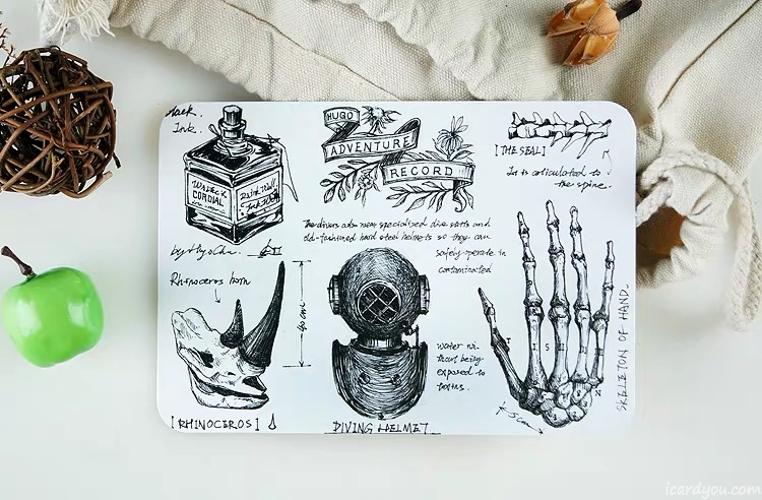 Ink.
CORDIAL
HUGO
ADVENTURE
RECORD
[THE SEAL]
It is articulated to
the spine.
The divers also wear specialised dive suits and
old-fashioned hard steel helmets so they can
safely operate in
contaminated
water wi-
thout being
exposed to
Rhinoceros horn
[RHINOCEROS]
DIVING HELMET
SKELETON OF HAND.
icardyou.com